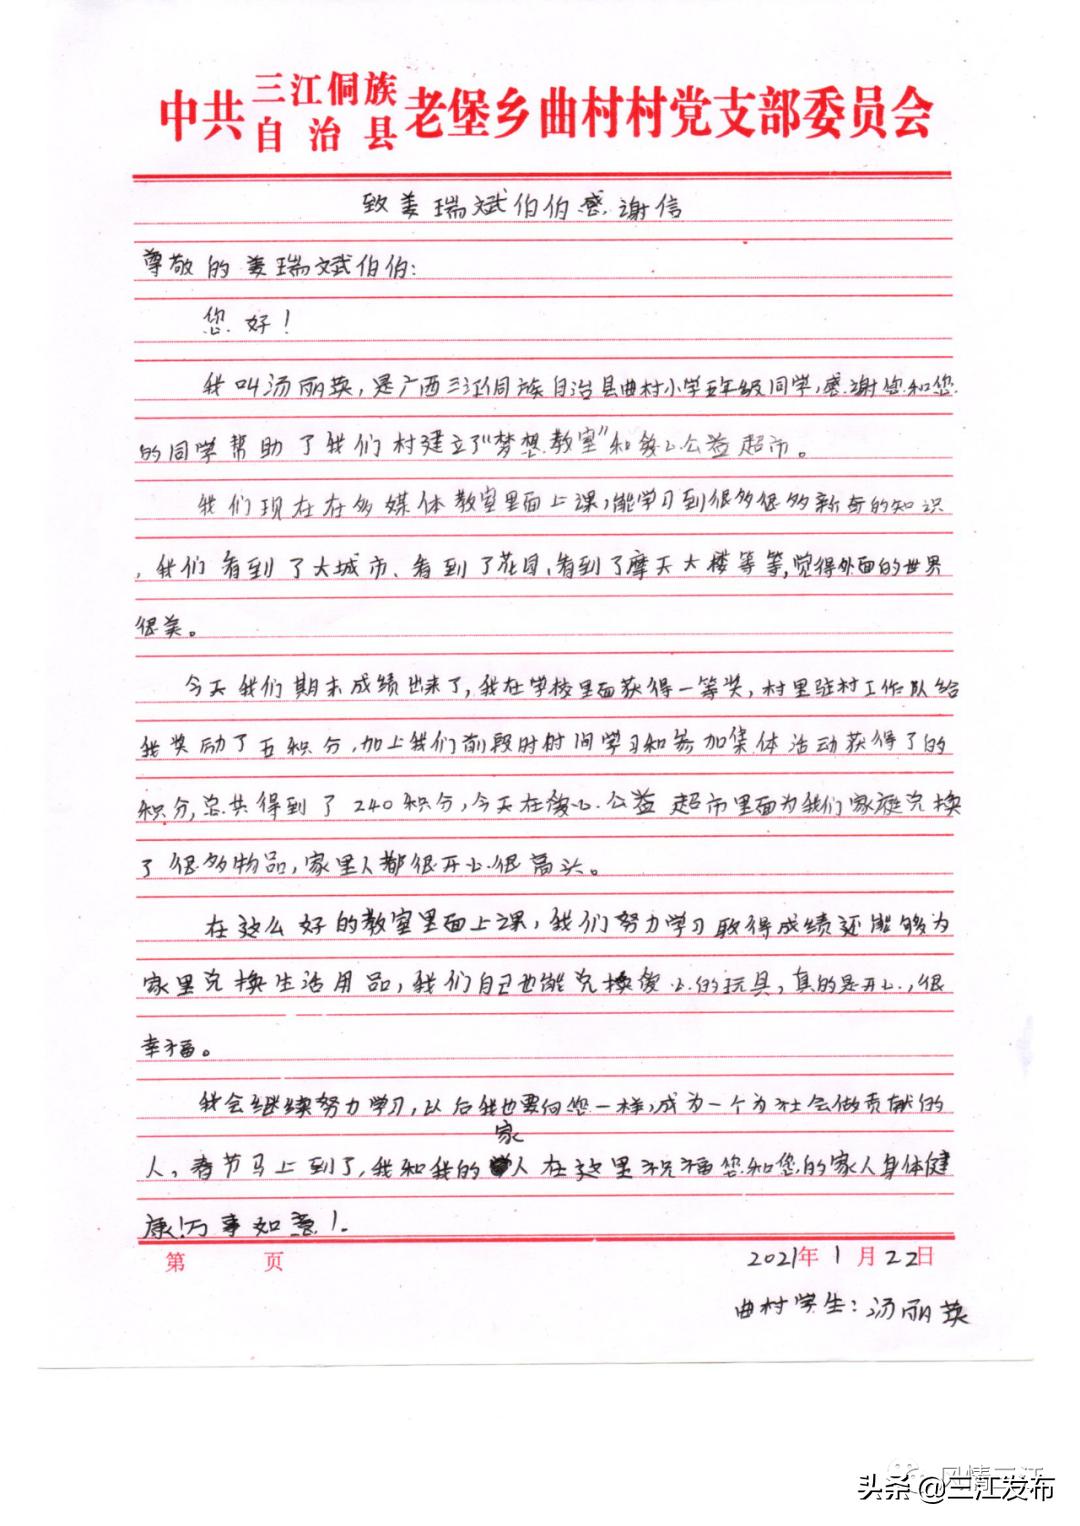 中共三江侗族自治县老堡乡曲村村党支部委员会
致姜瑞斌伯伯感谢信
尊敬的姜瑞斌伯伯：
您好！
我叫汤丽英，是广西三江侗族自治县曲村小学五年级同学，感谢您和您
的同学帮助了我们村建立了“梦想教室”和爱心公益超市。
我们现在在多媒体教室里面上课，能学习到很多很多新奇的知识
，我们看到了大城市、看到了花园、看到了摩天大楼等等，觉得外面的世界
很美。
今天我们期末成绩出来了，我在学校里面获得一等奖，村里驻村工作队给
我奖励了五积分，加上我们前段时时间学习和参加集体活动获得了的
积分，总共得到了240积分，今天在爱心公益超市里面为我们家庭兑换
了很多物品，家里人都很开心很高兴。
在这么好的教室里面上课，我们努力学习取得成绩还能够为
家里兑换生活用品，我们自己也能兑换爱心的玩具，真的是开心，很
幸福。
我会继续努力学习，以后我也要向您一样，成为一个为社会做贡献的
人，春节马上到了，我和我的家人在这里祝福您和您的家人身体健
康！万事如意！
第 页 2021年1月22日
曲村学生：汤丽英
风情三江
头条@三江发布